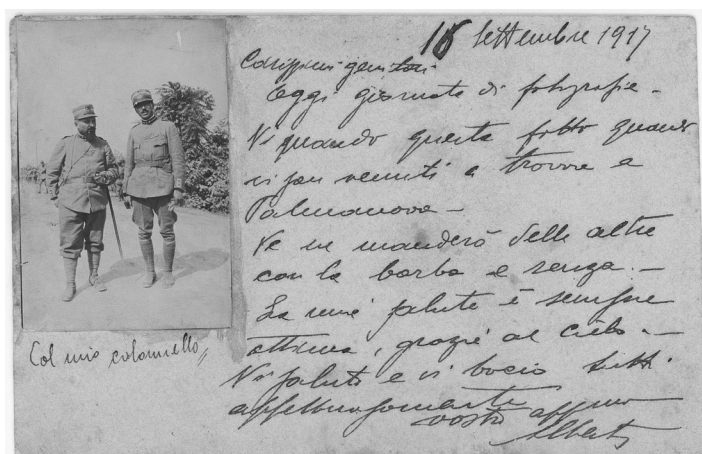 16 Settembre 1917
Carissimi genitori
Oggi giornata di fotografie -
Vi quando questa fotto quando
vi son venuti a trovare a
Palmanova -
Ve ne manderò delle altre
con la barba e senza. -
La mia salute è sempre
ottima, grazie al cielo. -
Vi saluto e vi bacio tutti
affettuosamente
vostro aff.mo
Alberto
Col mio colonnello,,